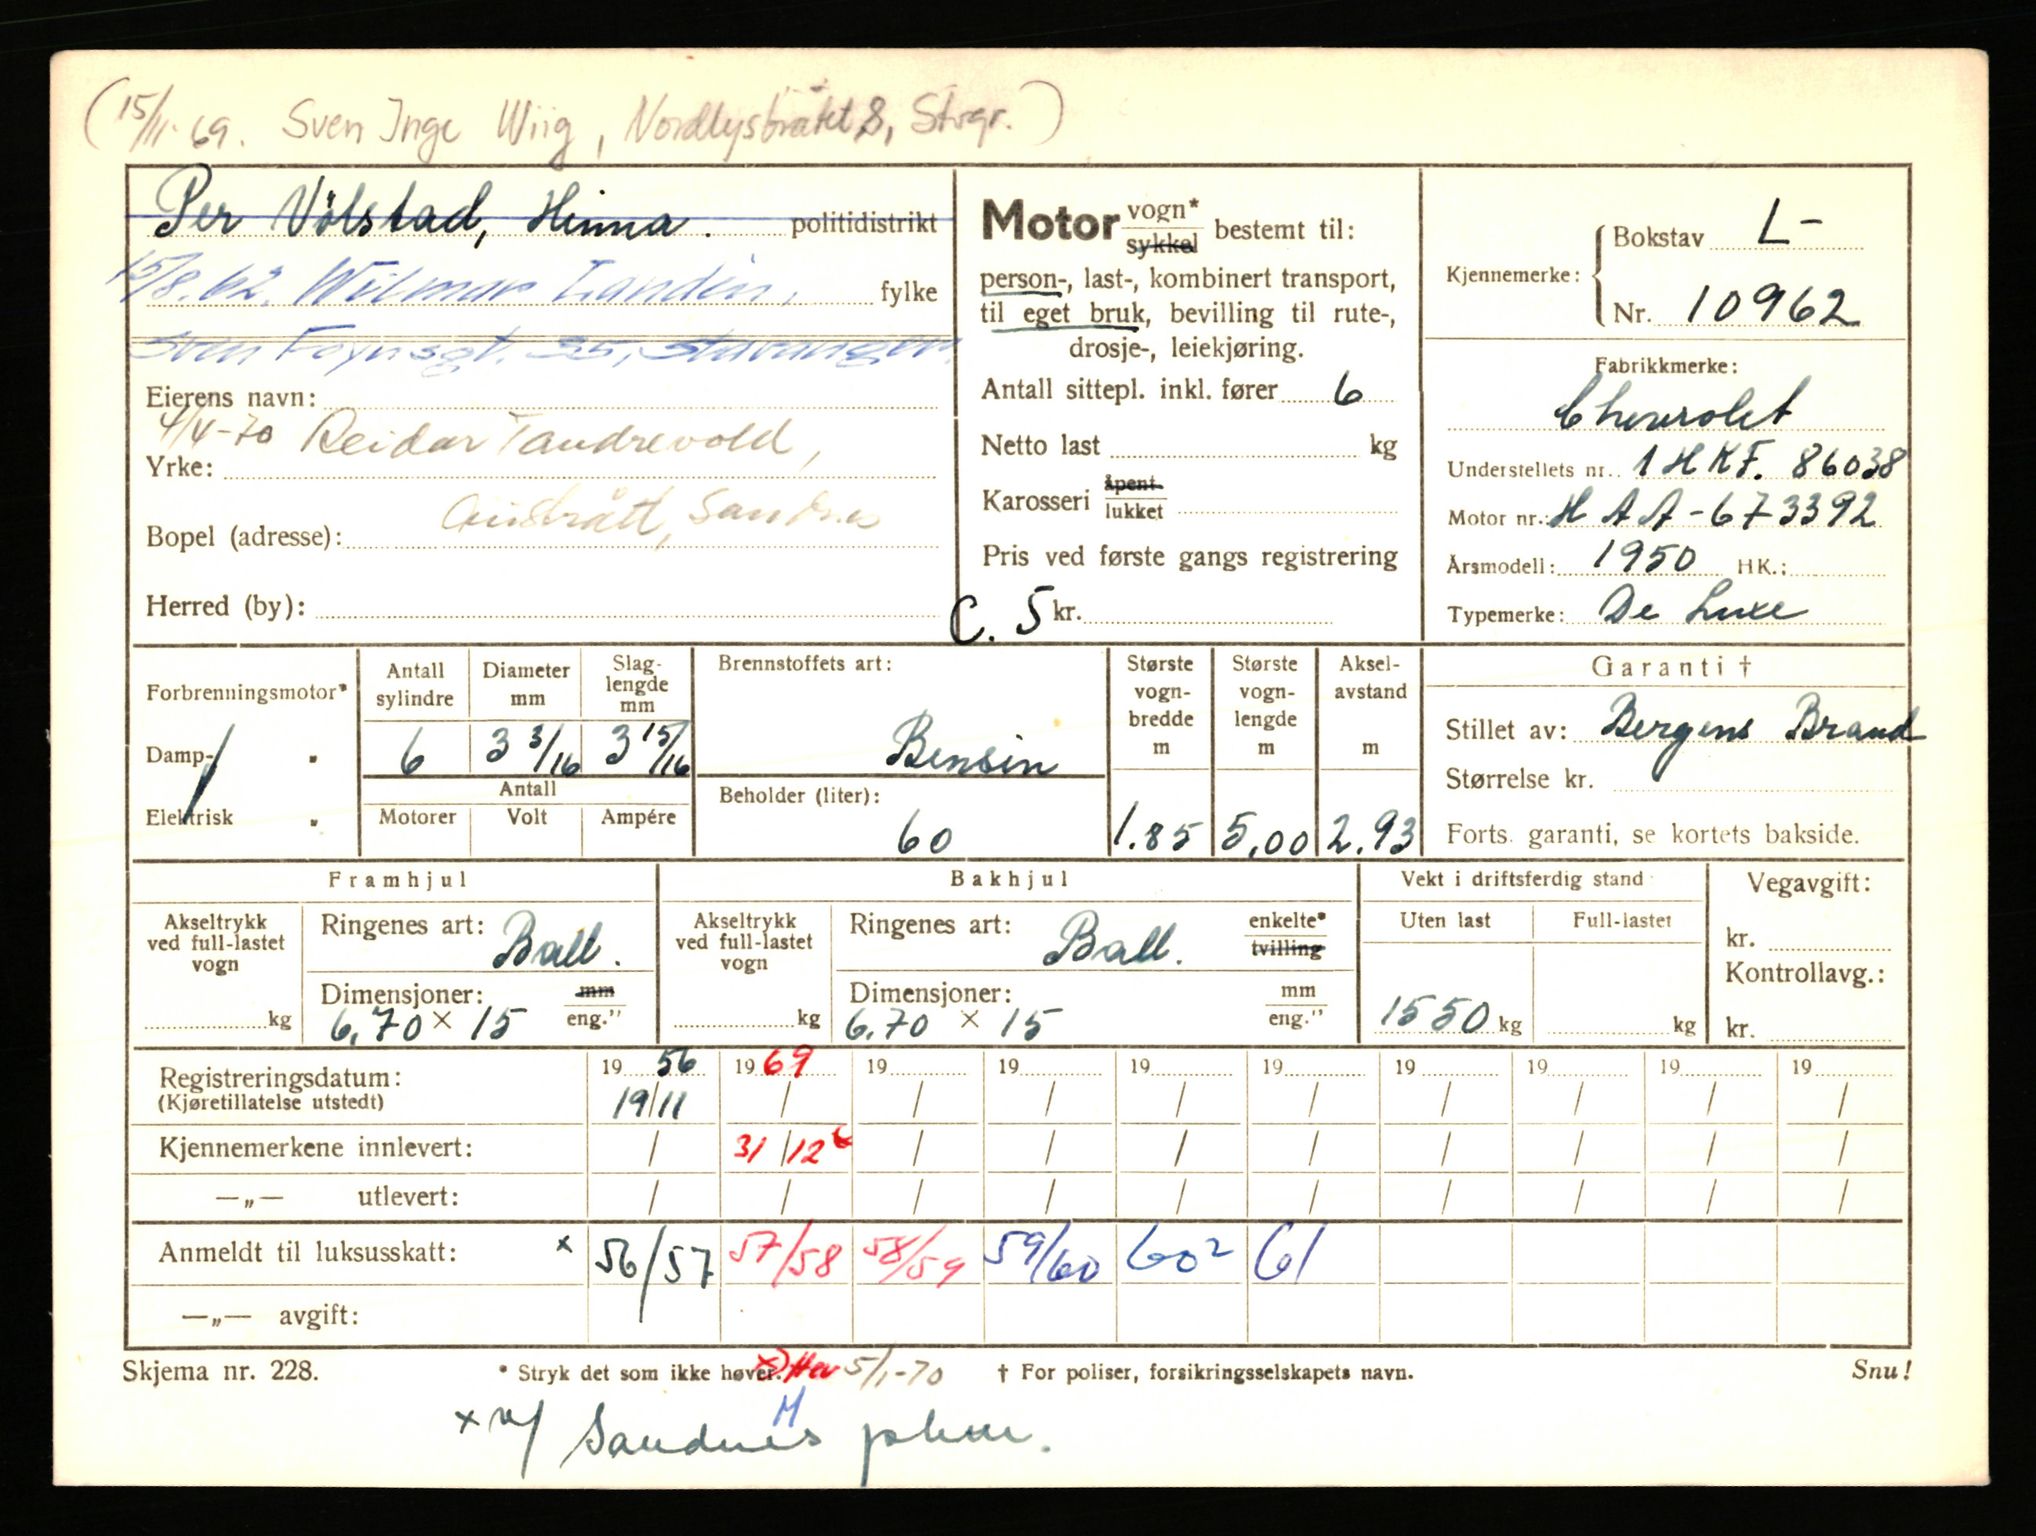 (15/11-69. Sven Inge Wiig, Nordlysbråtet 8, Stvgr.)
Per Völstad, Hinna. politidistrikt
15/8.62. Wilmar Landin, fylke
Sven Foynsgt. 35, Stavanger.
Eierens navn:
4/4-70 Reidar Tandrevold,
Yrke:
Austrått, Sandnes
Bopel (adresse):
Herred (by):
Motor vogn* sykkel bestemt til:
person-, last-, kombinert transport,
til eget bruk, bevilling til rute-,
drosje-, leiekjøring.
Antall sittepl. inkl. fører 6
Netto last kg
Karosseri åpent lukket
Pris ved første gangs registrering
C. 5 kr.
Kjennemerke: Bokstav L-
Nr. 10962
Fabrikkmerke:
Chevrolet
Understellets nr.. 1 HKF. 86038
Motor nr.: HAA-673392
Årsmodell: 1950 HK.:
Typemerke: De Luxe
Forbrenningsmotor*
Damp- "
Elektrisk "
Antall sylindre 6
Diameter mm 3 3/16
Slaglengde mm 3 15/16
Antall
Motorer Volt Ampére
Brennstoffets art:
Bensin
Beholder (liter):
60
Største vogn-bredde m 1.85
Største vogn-lengde m 5,00
Aksel-avstand m 2.93
Garanti †
Stillet av: Bergens Brand
Størrelse kr.
Forts. garanti, se kortets bakside.
Framhjul
Akseltrykk ved full-lastet vogn
kg
Ringenes art: Ball.
Dimensjoner: mm eng."
6.70 × 15
Bakhjul
Akseltrykk ved full-lastet vogn
kg
Ringenes art: Ball. enkelte* tvilling
Dimensjoner: mm eng."
6.70 × 15
Vekt i driftsferdig stand
Uten last Full-lastet
1550 kg kg
Vegavgift:
kr.
Kontrollavg.:
kr.
Registreringsdatum: 19 56 19 69 19 19 19 19 19 19 19 19
(Kjøretillatelse utstedt) 19/11 / / / / / / / / /
Kjennemerkene innlevert: / 31/12 / / / / / / / /
—„— utlevert: / / / / / / / / / /
Anmeldt til luksusskatt: x 56/57 57/58 58/59 59/60 60² 61
—„— avgift:
Skjema nr. 228. * Stryk det som ikke høver. x) 5/1-70 † For poliser, forsikringsselskapets navn. Snu!
M
x v/ Sandnes